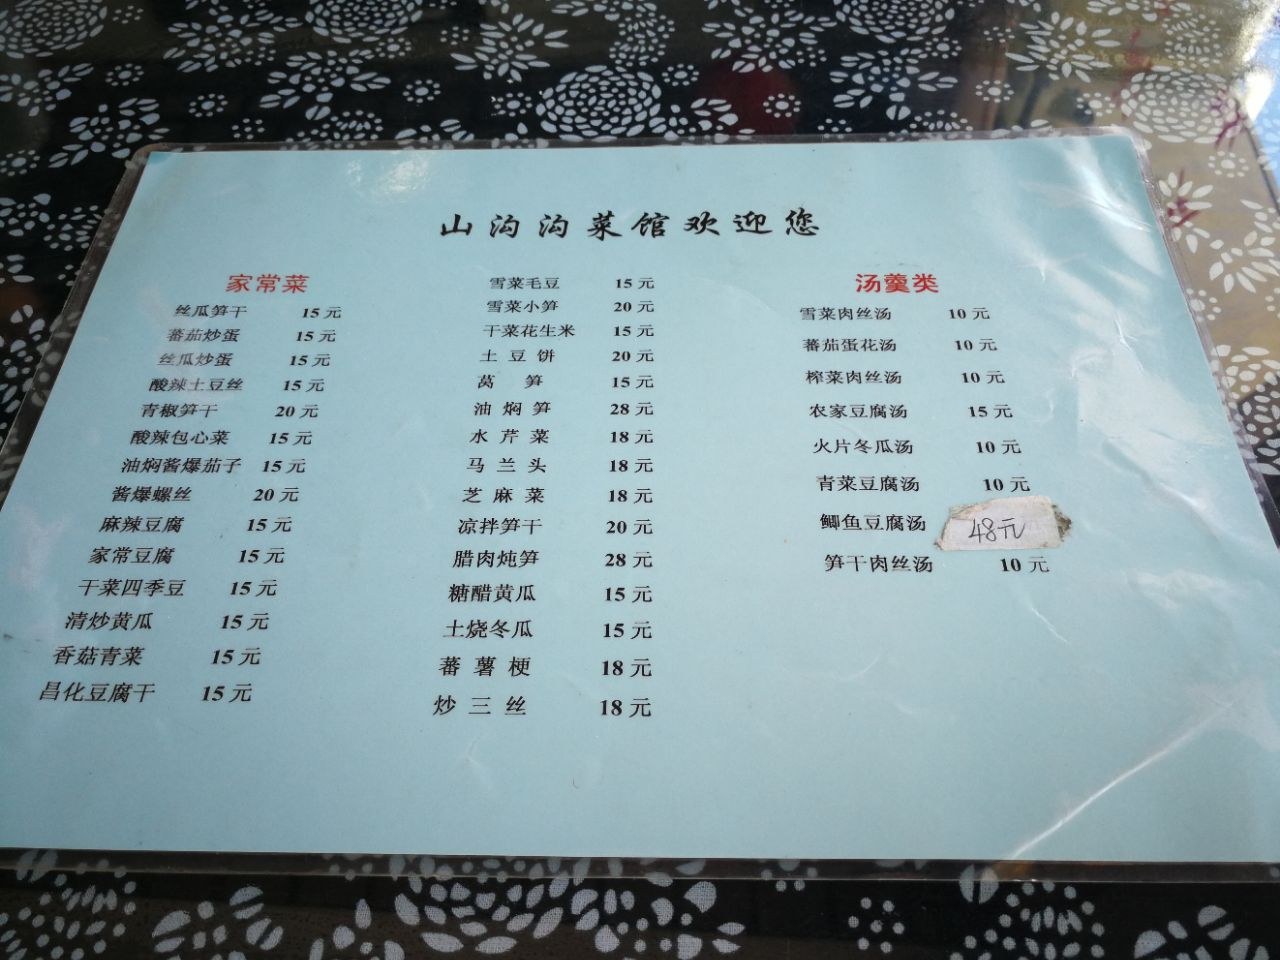 山沟沟菜馆欢迎您
家常菜
丝瓜笋干 15元
蕃茄炒蛋 15元
丝瓜炒蛋 15元
酸辣土豆丝 15元
青椒笋干 20元
酸辣包心菜 15元
油焖酱爆茄子 15元
酱爆螺丝 20元
麻辣豆腐 15元
家常豆腐 15元
干菜四季豆 15元
清炒黄瓜 15元
香菇青菜 15元
昌化豆腐干 15元
雪菜毛豆 15元
雪菜小笋 20元
干菜花生米 15元
土豆饼 20元
莴笋 15元
油焖笋 28元
水芹菜 18元
马兰头 18元
芝麻菜 18元
凉拌笋干 20元
腊肉炖笋 28元
糖醋黄瓜 15元
土烧冬瓜 15元
蕃薯梗 18元
炒三丝 18元
汤羹类
雪菜肉丝汤 10元
蕃茄蛋花汤 10元
榨菜肉丝汤 10元
农家豆腐汤 15元
火片冬瓜汤 10元
青菜豆腐汤 10元
鲫鱼豆腐汤 48元
笋干肉丝汤 10元